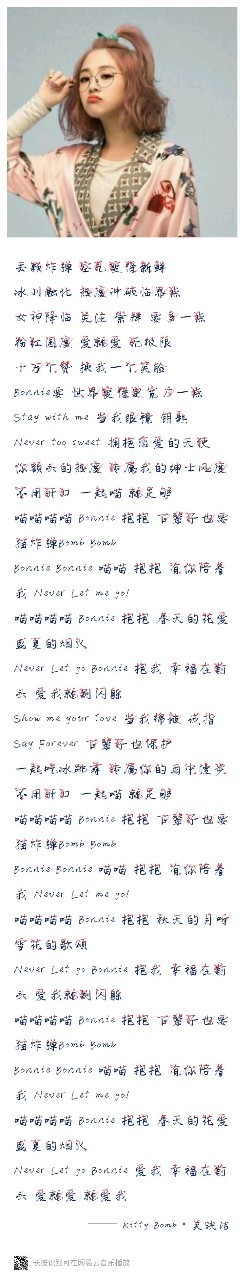 丢颗炸弹 空气变得新鲜
冰川融化 热度冲破临界点
女神降临 关注 崇拜 要多一点
粉红国度 爱就爱 无极限
十万个赞 换我一个笑脸
Bonnie要 世界变得更宽广一点
Stay with me 当我眼镜 钥匙
Never too sweet 拥抱恋爱的天使
你额头的热度 专属我的绅士风度
不用开口 一起喵 就足够
喵喵喵喵 Bonnie 抱抱 下辈子也要
猫炸弹Bomb Bomb
Bonnie Bonnie 喵喵 抱抱 有你陪着
我 Never Let me go!
喵喵喵喵 Bonnie 抱抱 春天的花爱
盛夏的烟火
Never Let go Bonnie 抱我 幸福在前
头 爱我就别闪躲
Show me your love 当我棉被 戒指
Say Forever 下辈子也保护
一起吃冰跳舞 专属你的雨中漫步
不用开口 一起喵 就足够
喵喵喵喵 Bonnie 抱抱 下辈子也要
猫炸弹Bomb Bomb
Bonnie Bonnie 喵喵 抱抱 有你陪着
我 Never Let me go!
喵喵喵喵 Bonnie 抱抱 秋天的月听
雪花的歌颂
Never Let go Bonnie 抱我 幸福在前
头 爱我就别闪躲
喵喵喵喵 Bonnie 抱抱 下辈子也要
猫炸弹Bomb Bomb
Bonnie Bonnie 喵喵 抱抱 有你陪着
我 Never Let me go!
喵喵喵喵 Bonnie 抱抱 春天的花爱
盛夏的烟火
Never Let go Bonnie 爱我 幸福在前
头 爱就爱 就爱我
—— Kitty Bomb · 吴映洁
长按识别可在网易云音乐播放